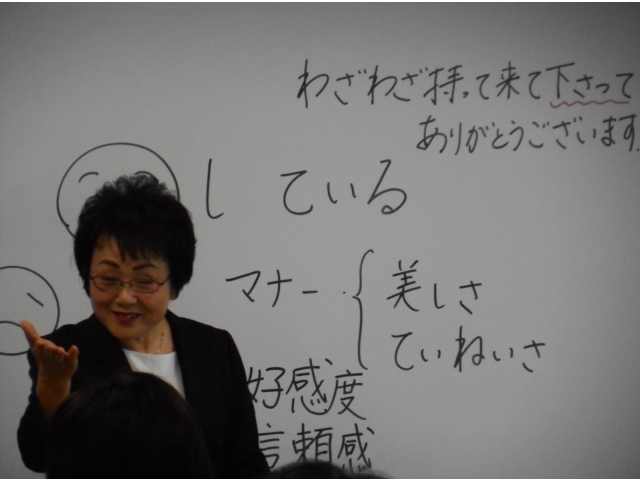 わざわざ持って来て下さって
ありがとうございます.
している
マナー { 美しさ
ていねいさ
好感度
信頼感